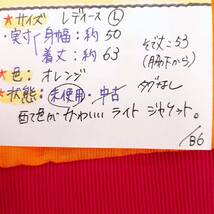 ★サイズ レディース Ⓛ
・実寸 身幅：約50 そで丈：53
着丈：約63 (脇下から)
★色：オレンジ タグなし
★状態：未使用・中古
配色が かわいい ライト ジャケット。
/B6